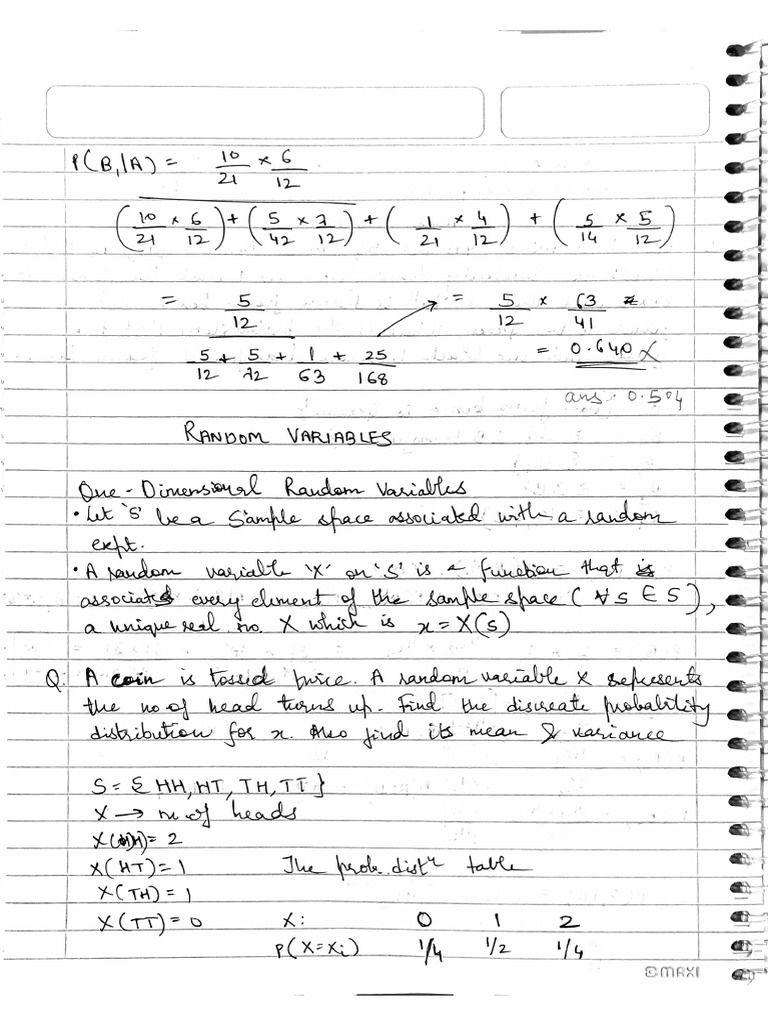 P(B₁|A) = 10/21 × 6/12
(10/21 × 6/12) + (5/42 × 7/12) + (1/21 × 4/12) + (5/14 × 5/12)
= 5/12 = 5/12 × 63/41
5/12 + 5/72 + 1/63 + 25/168 = 0.640 X
ans. 0.504
RANDOM VARIABLES
One-Dimensional Random Variables
• Let 'S' be a Sample space associated with a random
expt.
• A random variable 'X' on 'S' is a function that is
associats every element of the sample space (∀ s ∈ S),
a unique real no. X which is x = X(s)
Q. A coin is tossed twice. A random variable X represents
the no of head turns up. Find the discreate probability
distribution for x. Also find its mean & variance
S = {HH, HT, TH, TT}
X → no. of heads
X(HH) = 2
X(HT) = 1 The prob. distⁿ table
X(TH) = 1
X(TT) = 0 X: 0 1 2
P(X=xi) 1/4 1/2 1/4
MAXI